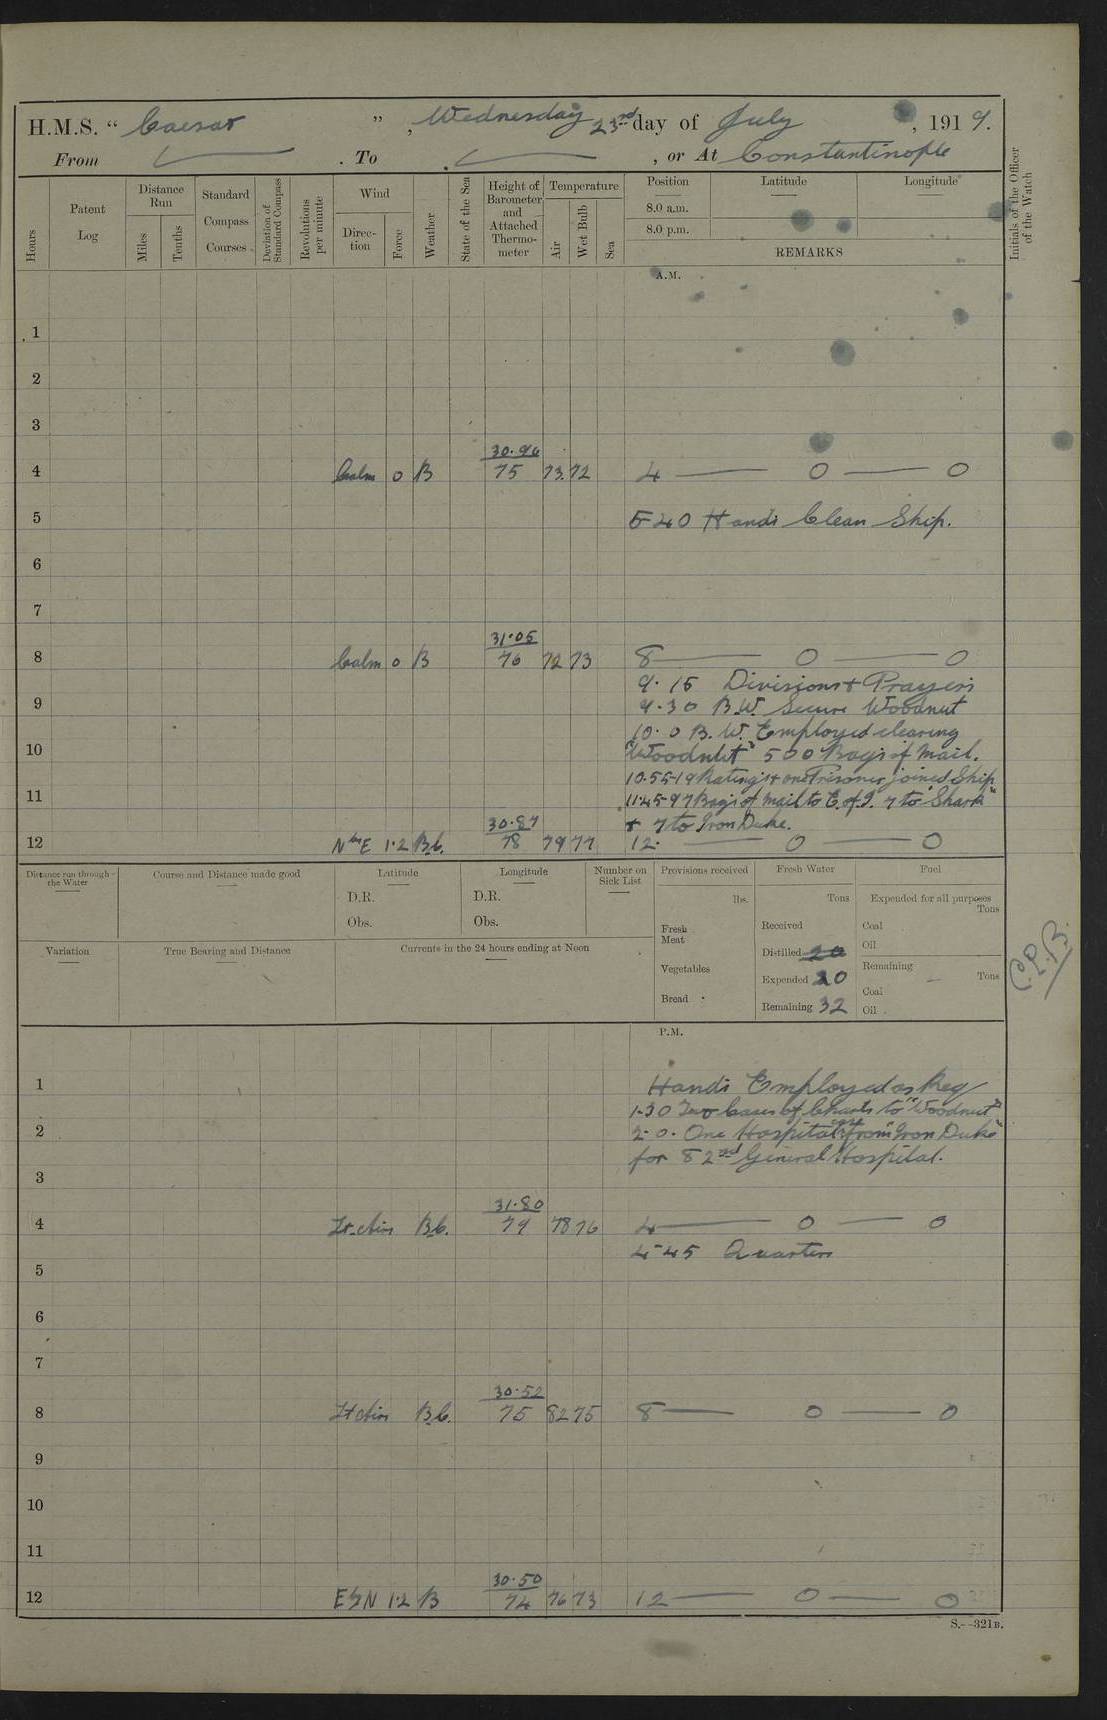 H.M.S. “ Caesar ” , Wednesday 23rd day of July , 1919.
From . To . , or At Constantinople
Hours
Patent Log
Distance Run
Miles
Tenths
Standard Compass Courses.
Deviation of Standard Compass
Revolutions per minute
Wind
Direction
Force
Weather
State of the Sea
Height of Barometer and Attached Thermometer
Temperature
Air
Wet Bulb
Sea
Position
8.0 a.m.
8.0 p.m.
Latitude
Longitude
REMARKS
Initials of the Officer of the Watch
A.M.
1
2
3
30.96
4 Calm 0 B 75 73 72 4 — 0 — 0
5 5-40 Hands Clean Ship.
6
7
31.05
8 Calm 0 B 76 72 73 8 — 0 — 0
9.15 Divisions + Prayers
9 9.30 B.W. Secure Woodnut
10.0 B.W. Employed clearing
10 "Woodnut" 500 Bags of Mail.
10.55-19 Ratings + one Prisoner joined Ship
11 11.45-97 Bags of mail to E. of I. 7 to "Shark"
30.87 + 7 to Iron Duke.
12 N by E 1.2 B.c. 78 79 77 12. — 0 — 0
Distance run through the Water
Course and Distance made good
Latitude
D.R.
Obs.
Longitude
D.R.
Obs.
Number on Sick List
Provisions received
lbs.
Fresh Meat
Vegetables
Bread
Fresh Water
Tons
Received
Distilled 20
Expended 20
Remaining 32
Fuel
Expended for all purposes
Tons
Coal
Oil
Remaining
Tons
Coal
Oil
Variation
True Bearing and Distance
Currents in the 24 hours ending at Noon
C.P.B.
P.M.
1 Hands Employed as Req
1-30 Two Cases of Charts to "Woodnut"
2 2-0. One Hospital from "Iron Duke"
for 82nd General Hospital.
3
31.80
4 Lt. airs B.c. 79 78 76 4 — 0 — 0
4-45 Quarters
5
6
7
30.52
8 Lt airs B.c. 75 82 75 8 — 0 — 0
9
10
11
30.50
12 E by N 1.2 B 74 76 73 12 — 0 — 0
S.—321B.